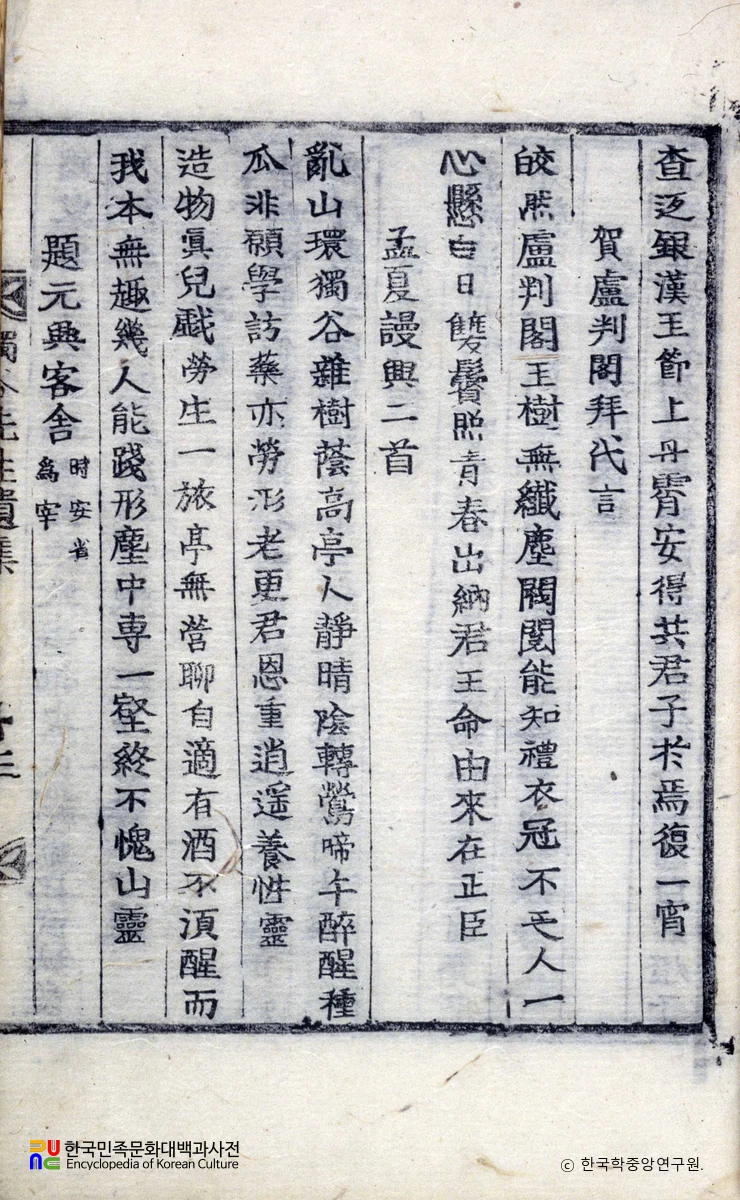 查迢銀漢玉節上丹霄安得共君子於焉復一宵
賀盧判閣拜代言
皎然盧判閣玉樹無纖塵閥閱能知禮衣冠不乏人一
心懸白日雙鬢照靑春出納君王命由來在正臣
孟夏謾興二首
亂山環獨谷雜樹蔭高亭人靜晴陰轉鶯啼午醉醒種
瓜非願學訪藥亦勞形老更君恩重逍遥養性靈
造物眞兒戱勞生一旅亭無營聊自適有酒不須醒而
我本無趣幾人能踐形塵中專一壑終不愧山靈
題元興客舍 時安省爲宰
獨谷先生遺集
한국민족문화대백과사전
Encyclopedia of Korean Culture
© 한국학중앙연구원.